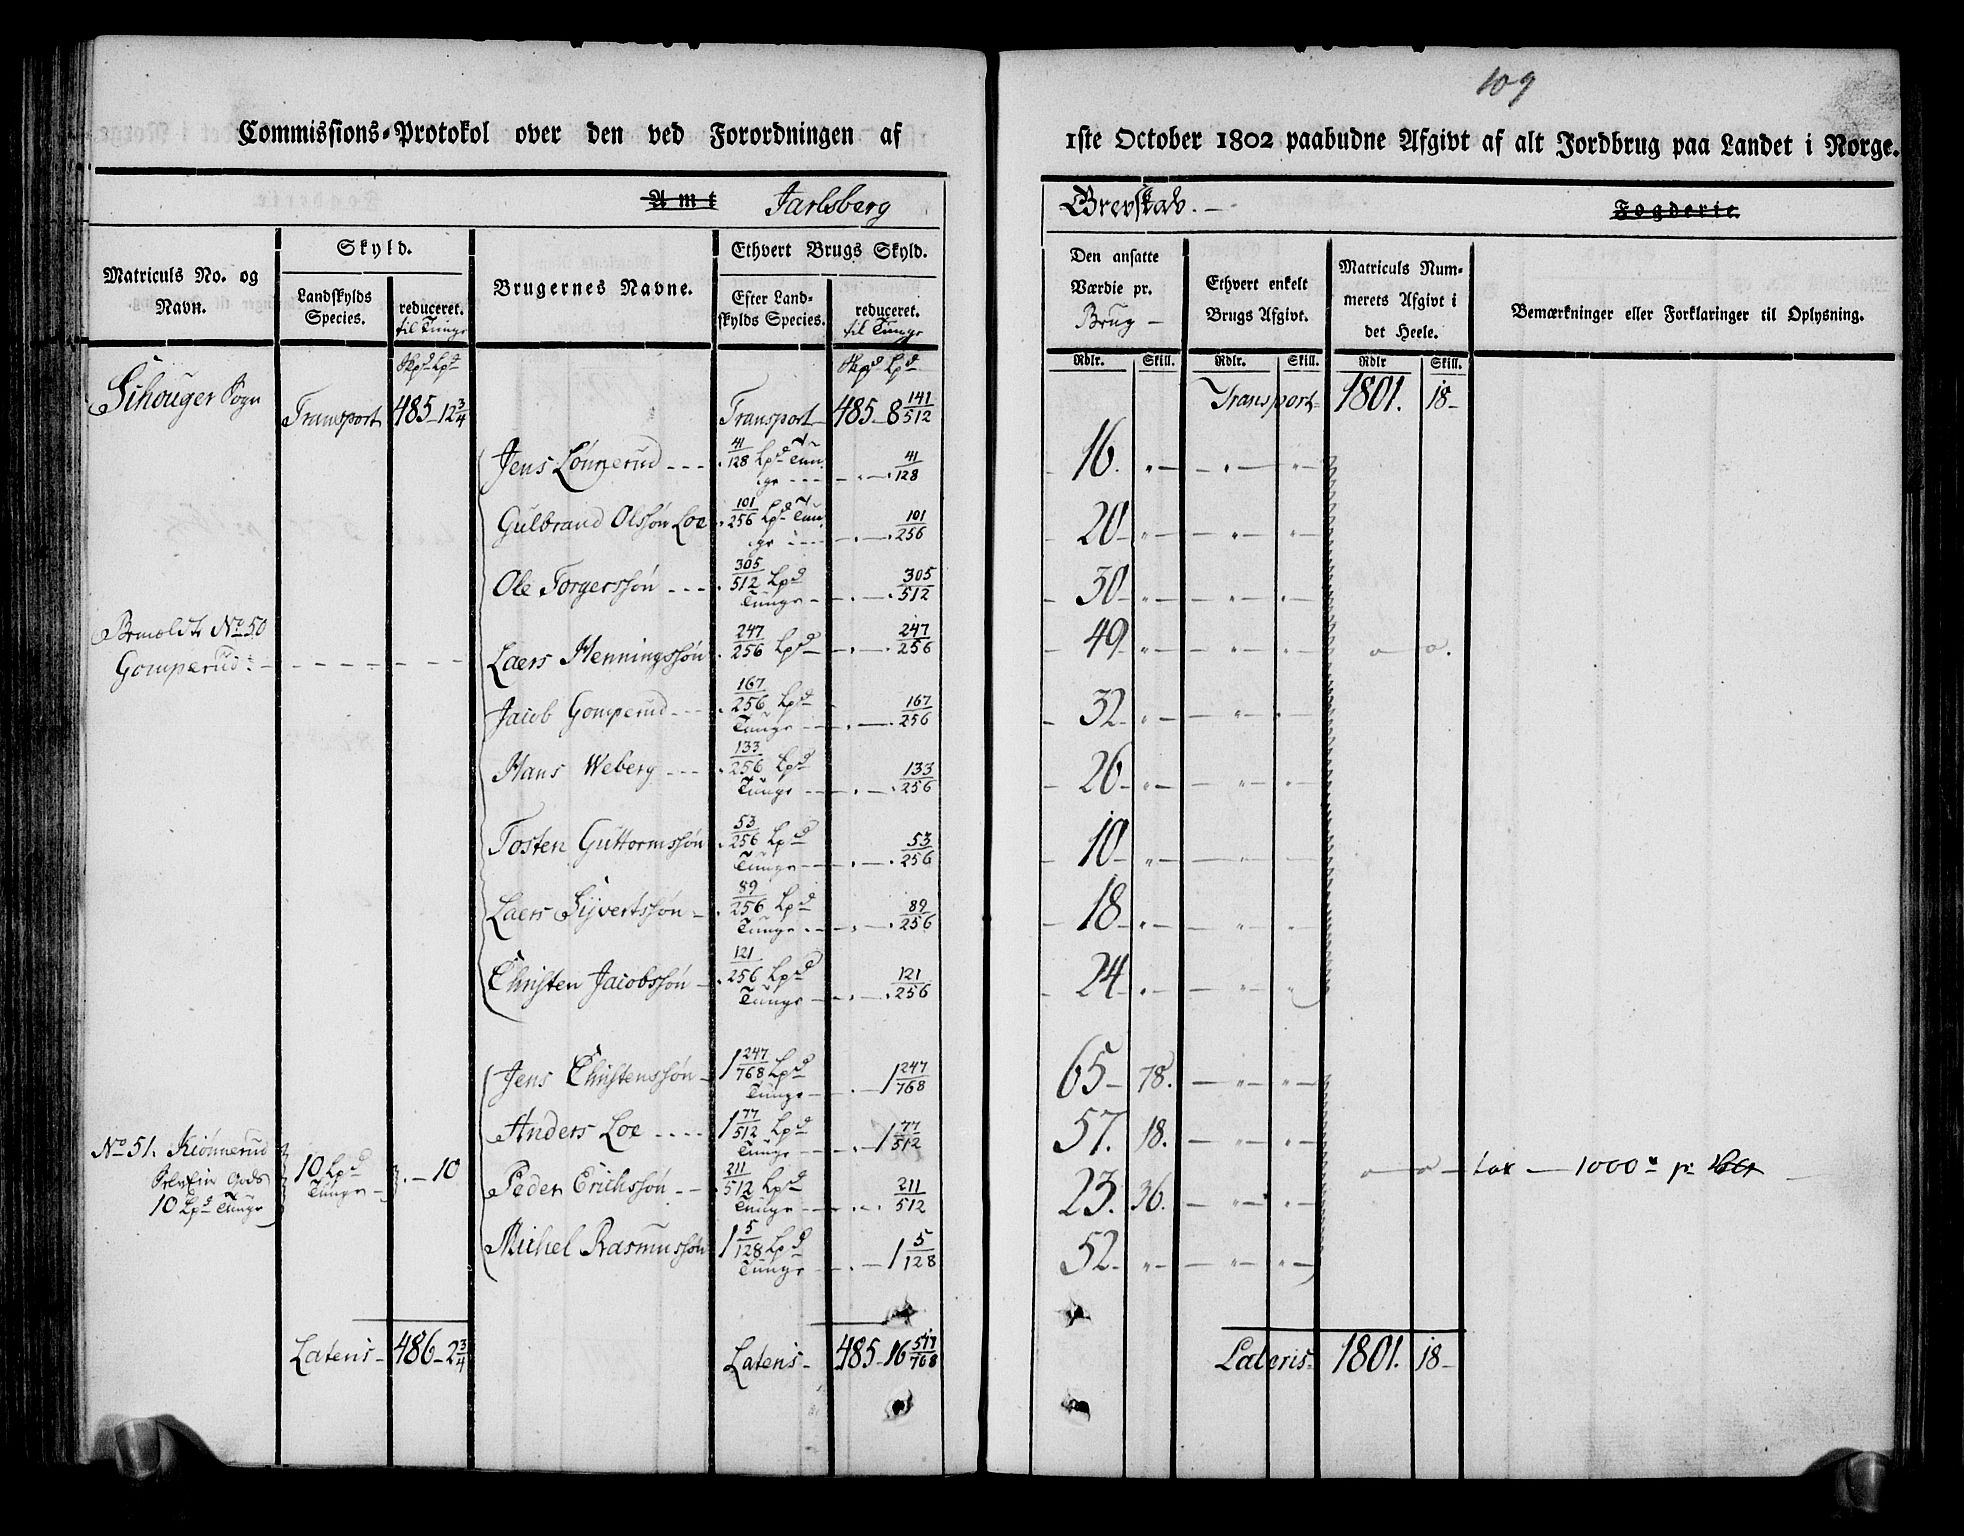 109
Commissions-Protokol over den ved Forordningen af 1ste October 1802 paabudne Afgivt af alt Jordbrug paa Landet i Norge.
Amt Jarlsberg Grevskab. Fogderie.
Matriculs No. og Navn.
Skyld.
Landskylds Species.
reduceret. til Tunge
Brugernes Navne.
Ethvert Brugs Skyld.
Efter Landskylds Species.
reduceret. til Tunge
Den ansatte Værdie pr. Brug
Ethvert enkelt Brugs Afgivt.
Matriculs Nummerets Afgivt i det Heele.
Bemærkninger eller Forklaringer til Oplysning.
Skpd Lpd Skpd Lpd Rdlr. Skill. Rdlr. Skill. Rdlr Skill.
Sogn Transport 485 - 12 3/4 Transport 485 - 8 141/512 Transport 1801. 18
Jens 41/128 Lpd Tunge 41/128 16.
Gulbrand Olssøn Loe 101/256 Lpd Tunge 101/256 20
Ole Torgerssøn 305/512 Lpd Tunge 305/512 30
No 50 Gomperud Laers Henningssøn 247/256 Lpd 247/256 49
Jacob Gomperud 167/256 Lpd Tunge 167/256 32
Hans Weberg 133/256 Lpd Tunge 133/256 26
Tosten Guttormssøn 53/256 Lpd Tunge 53/256 10
Laers Syvertssøn 89/256 Lpd Tunge 89/256 18
Christen Jacobssøn 121/256 Lpd Tunge 121/256 24
Jens Christenssøn 1 247/768 Lpd Tunge 1 247/768 65 78.
Anders Loe 1 77/512 Lpd Tunge 1 77/512 57. 18.
No 51. Kiønnerud Gods 10 Lpd Tunge 10 Lpd Tunge 10 Peder Erichssøn 211/512 Lpd Tunge 211/512 23. 36. tax 1000
Michel Rasmussøn 1 5/128 Lpd Tunge 1 5/128 52
Lateris 486 - 2 3/4 Lateris 485 - 16 517/768 Lateris 1801. 18